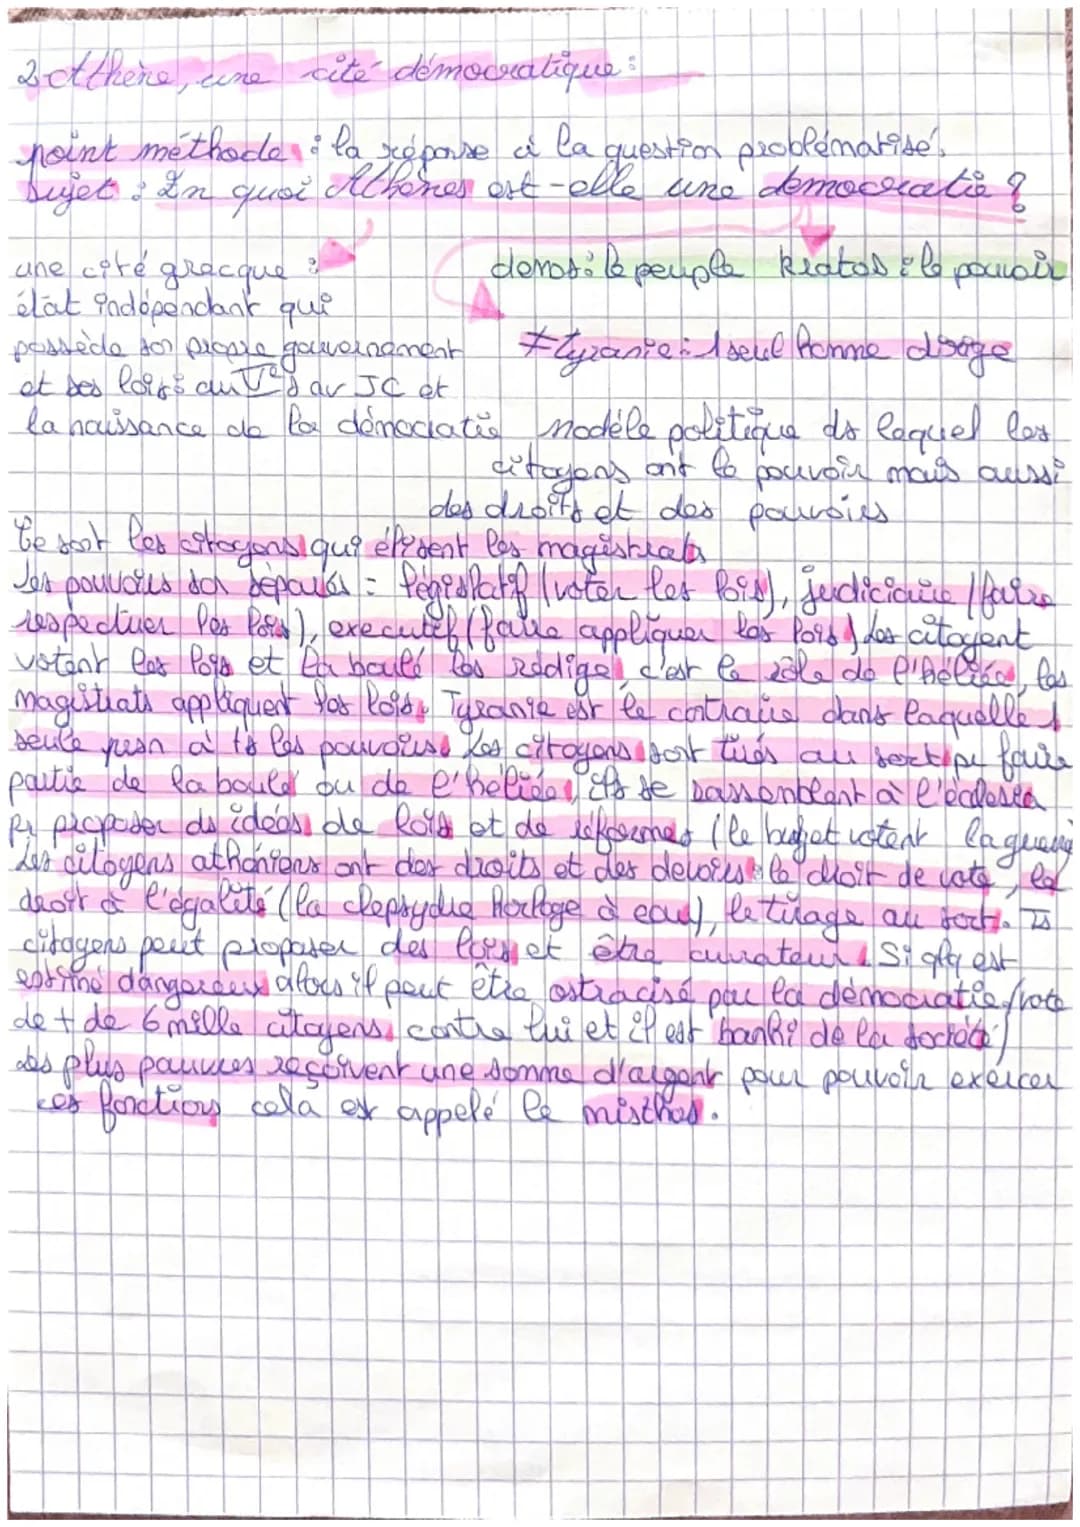 2 Athène, une cité démocratique :
point méthode : la réponse à la question problématisé.
Sujet : En quoi Athènes est-elle une démocratie ?
une cité grecque :
état indépendant qui
possède son propre gouvernement
et ses lois : au Ve s av JC et
la naissance de la démocratie
demos : le peuple kratos : le pouvoir
≠ tyranie : 1 seul homme dirige
modèle politique ds lequel les
citoyens ont le pouvoir mais aussi
des droits et des pouvoirs
Ce sont les citoyens qui élisent les magistrats
les pouvoirs sot séparés = législatif (voter les lois), judiciaire (faire
respectuer les lois), executif (faire appliquer les lois) les citoyent
votent les lois et la boulé les rédige, c'est le rôle de l'héliée, les
magistrats appliquent les lois. Tyranie est le contraire dans laquelle 1
seule prsn a ts les pouvoirs. Les citoyens sont tirés au sort pr faire
partie de la boulé ou de l'héliée, ils se rassemblent à l'eclesia
pr proposer ds idées de lois et de réformes (le bujet votent la guerre
Les citoyens athéniens ont des droits et des devoirs : le droit de vote, le
droit à l'égalité (la clepsydre horloge à eau), le tirage au sort. Ts
citoyens peut proposer des lois et être curateur. Si qlq est
estimé dangereux alors il peut être ostracisé par la démocratie (vote
de + de 6 mille citoyens contre lui et il est banni de la société)
les plus pauvres reçoivent une somme d'argent pour pouvoir exercer
ces fonctions cela est appelé le misthos.